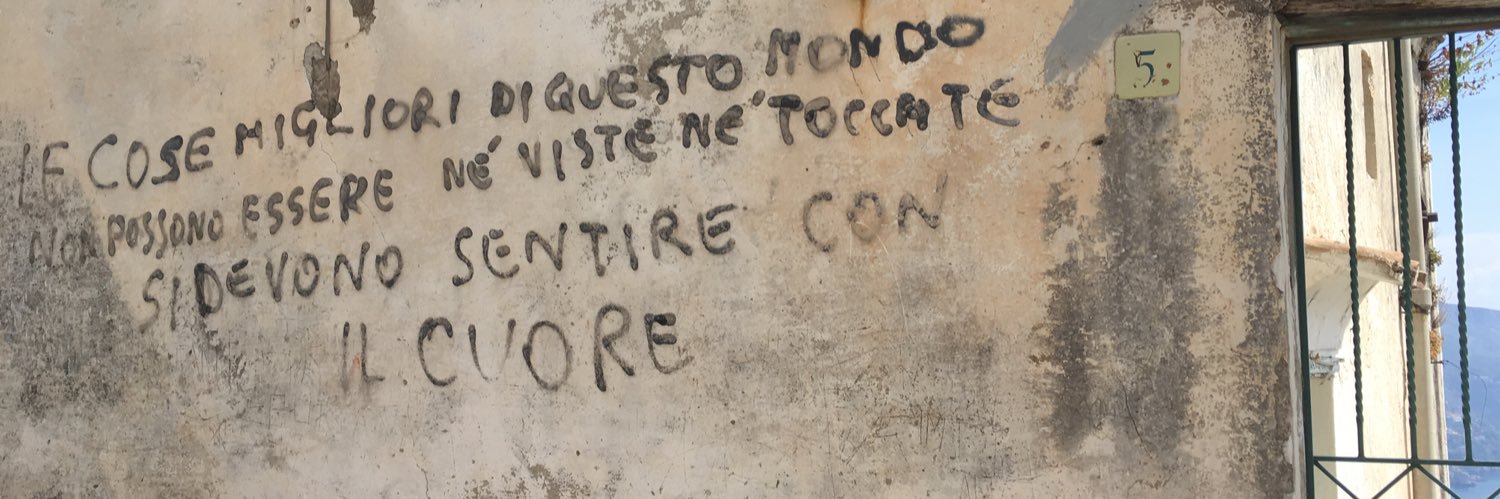 LE COSE MIGLIORI DI QUESTO MONDO
NON POSSONO ESSERE NÉ VISTE NÉ TOCCATE
SI DEVONO SENTIRE CON
IL CUORE
5